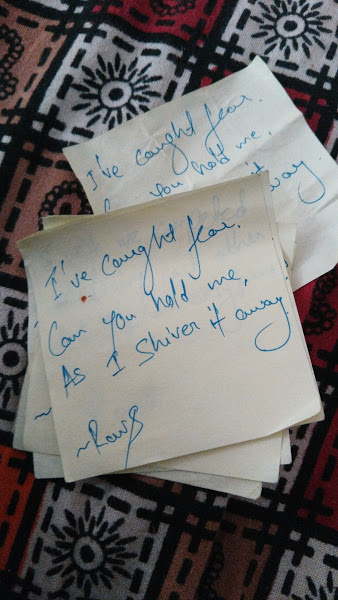 I've caught fear.
you hold me,
it away.
I've caught fear,
Can you hold me,
As I shiver it away.